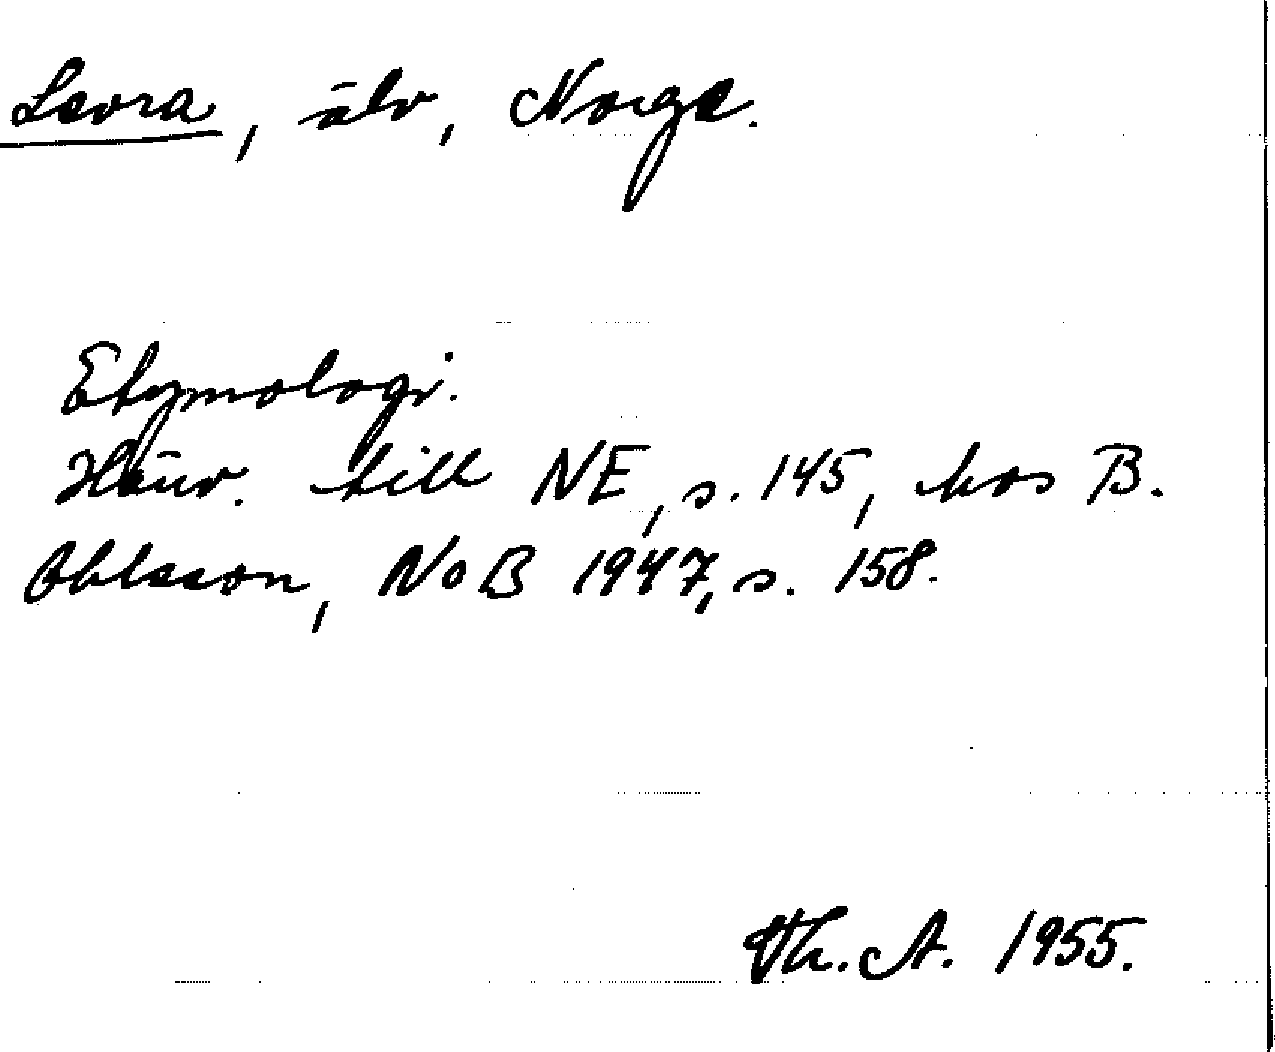 Levra, älv, Norge.
Etymologi.
Hänv. till NE, s. 145, hos B.
Ohlsson, NoB 1947, s. 158.
Th. A. 1955.